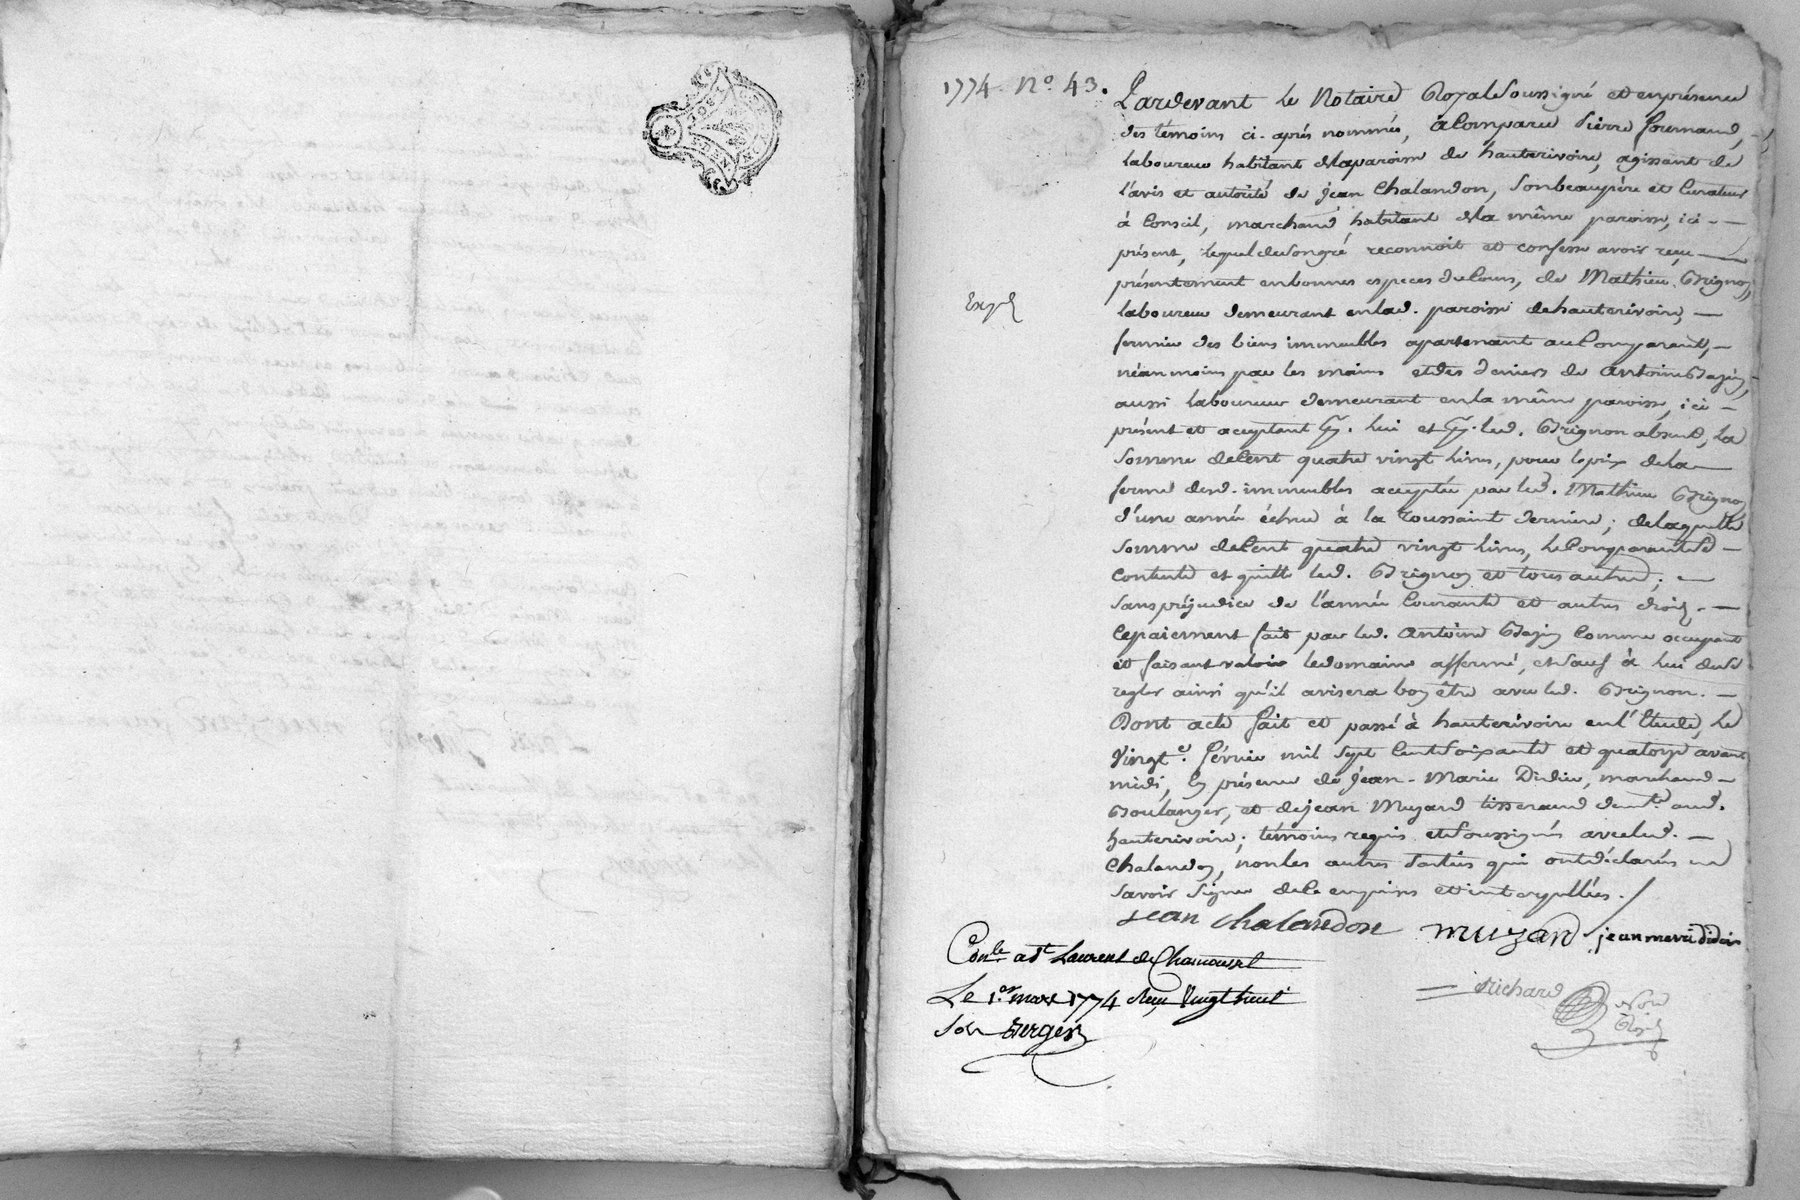 1774. No. 43.
Pardevant Le Notaire Royal Soussigné et enprésence
des témoins ci-après nommés, a Comparu Pierre
laboureur habitant delaparoisse de hauterivoire, agissant de
l'avis et autorité de Jean Chalandon, Sonbeaupère et Curateur
à Conseil, marchand habitant dela même paroisse, ici -
présent, lequel deSongré reconnoit et confesse avoir reçu
présentement enbonnes especes duCours, de Mathieu Grignon,
laboureur demeurant enlad. paroisse dehauterivoire, -
fermier des biens immeubles apartenant auComparant, -
néanmoins par les mains et des deniers de Antoine
aussi laboureur demeurant enla même paroisse, ici -
présent et acceptant lui et led. Grignon absent, La
Somme deCent quatre vingt livres, pour leprix dela
ferme desd. immeubles acceptée par led. Mathieu Grignon
d'une année échue à la toussaint derniere; delaquelle
Somme deCent quatre vingt livres, leComparant Se -
contente et quitte led. Grignon et tous autres; -
Sanspréjudice de l'année Courante et autres droits. -
Cepaiement fait par led. Antoine Comme occupant
et faisant valoir ledomaine affermé, etSauf à lui deSe
regler ainsi qu'il avisera bon être avec led. Grignon. -
Dont acte fait et passé à hauterivoire en l'Etude, Le
Vingt. février mil Sept CentSoixante et quatorze avant
midi, En présence de Jean-Marie Didier, marchand -
Boulanger, et deJean Muzard tisserand demt. aud.
hauterivoire; témoins requis etSoussignés avecled. -
Chalandon, nonles autres Parties qui ontdéclarés ne
Savoir Signer dece enquises et interpellées. /
Expé
jean chalandon muzard jean marie didier
Conlé a St Laurent de Chamousset
Le 1.er mars 1774 Reçu Vingt huit
Sols Berger
Richard Nore
Royal